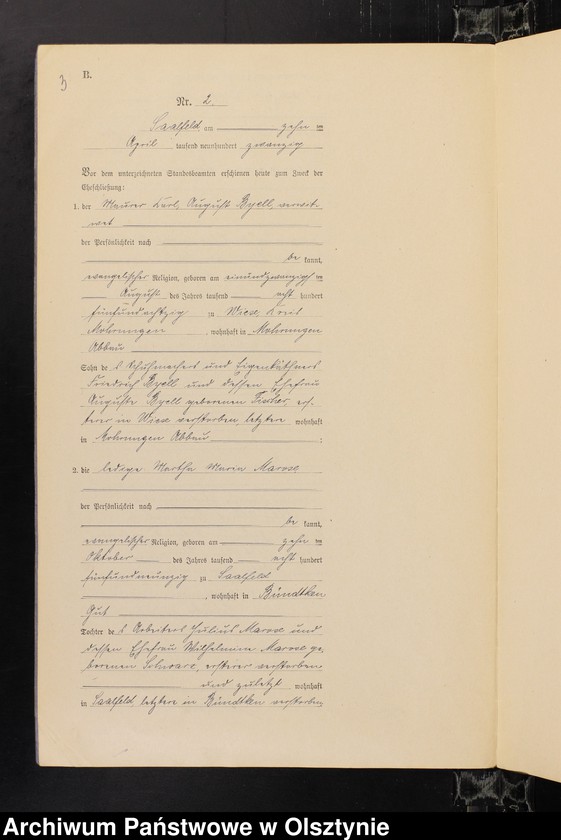 3
B.
Nr. 2.
Saalfeld am zehnten
April tausend neunhundert zwanzig
Vor dem unterzeichneten Standesbeamten erschienen heute zum Zweck der
Eheschließung:
1. der Maurer Karl August Gyell, verwit-
wet
der Persönlichkeit nach
be kannt,
evangelischer Religion, geboren am einundzwanzigsten
August des Jahres tausend acht hundert
fünfundachtzig zu Wiese Kreis
Mohrungen, wohnhaft in Mohrungen
Abbau
Sohn des Schuhmachers und Eigenkäthners
Friedrich Gyell und dessen Ehefrau
Auguste Gyell geborenen, ers-
terer in Wiese verstorben letztere wohnhaft
in Mohrungen Abbau :
2. die ledige Martha Maria Marose
der Persönlichkeit nach
be kannt,
evangelischer Religion, geboren am zehnten
Oktober des Jahres tausend acht hundert
fünfundneunzig zu Saalfeld
, wohnhaft in Bündtken
Gut
Tochter des Arbeiters Julius Marose und
dessen Ehefrau Wilhelmine Marose ge-
borenen Schwarz, ersterer verstorben
und zuletzt wohnhaft
in Saalfeld letztere in Bündtken verstorben
Archiwum Państwowe w Olsztynie